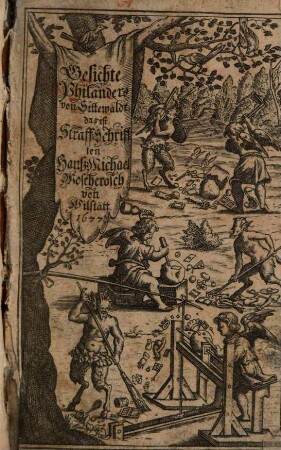 Gesichte
Philanders
von Sittewaldt
das ist
Straff Schriff
ten
Hanß Michael
Moscherosch
von
Wilstätt.
1677